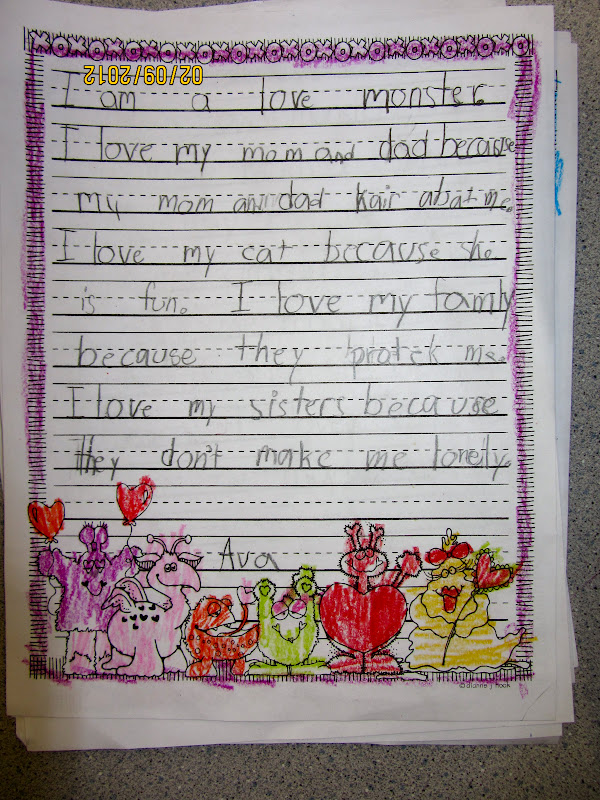 02/09/2012
I am a love monster.
I love my mom and dad because
my mom and dad kair abat me.
I love my cat because she
is fun. I love my famly
because they protek me.
I love my sisters because
they don't make me lonely.
Ava
©dianne j hook